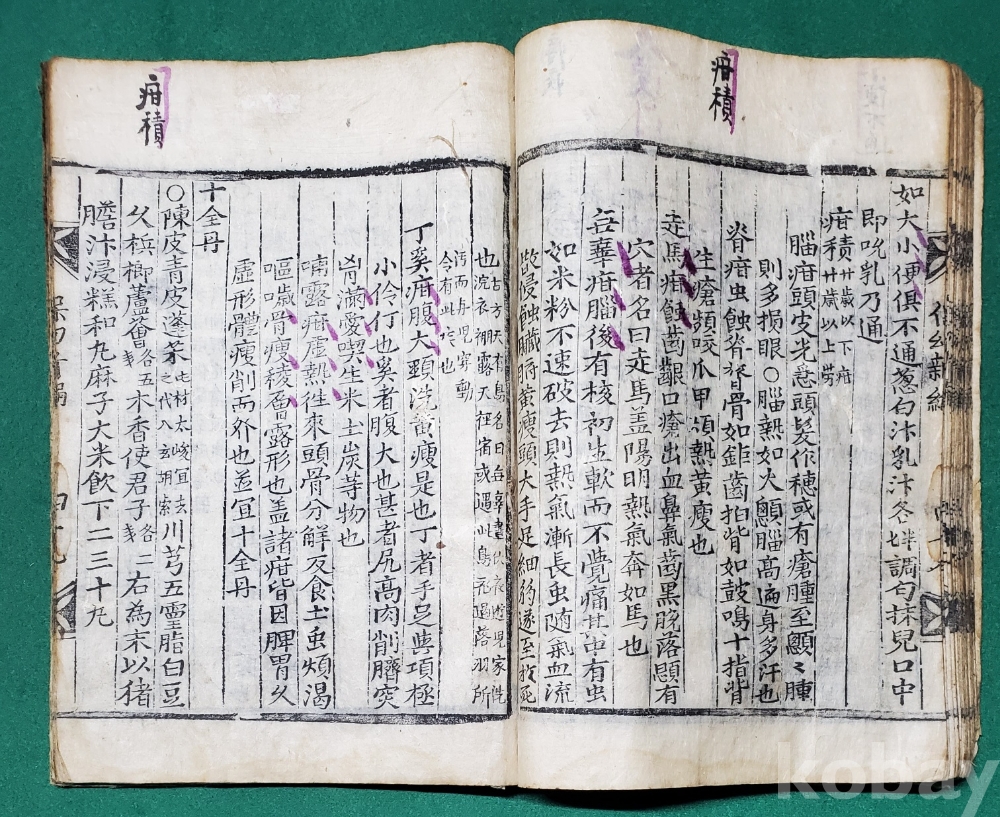 疳積
如大小便俱不通葱白汁乳汁各半調勻抹兒口中
即吮乳乃通
疳積 廿歲以下疳 廿歲以上勞
腦疳頭皮光急頭髮作穗或有瘡腫至顖〻腫
則多損眼〇腦熱如火顖腦高遍身多汗也
脊疳虫蝕脊膂骨如鉅齒拍背如鼓鳴十指背
生瘡頻咬爪甲煩熱黃瘦也
走馬疳蝕齒齦口瘡出血鼻氣齒黑脫落顋有
穴者名曰走馬盖陽明熱氣奔如馬也
無辜疳腦後有核初生軟而不覺痛其中有虫
如米粉不速破去則熱氣漸長虫隨氣血流
散侵蝕臟腑黃瘦頭大手足細的遂至於死
疳積
也 古方天有鳥名曰無辜晝伏夜遊兒家洗
浣衣裯露天徃宿或遇此鳥飛過落羽所
汚而身兒穿動
令有此症也
丁奚疳腹大頸洗黃瘦是也丁者手足與項極
小伶仃也奚者腹大也甚者尻高肉削臍突
胷滿愛喫生米土炭等物也
哺露疳虛熱徃來頭骨分解反食土虫煩渴
嘔噦骨瘦稜層露形也盖諸疳皆因脾胃久
虛形體瘦削而外也並宜十全丹
十全丹
〇陳皮青皮蓬朮 川芎五靈脂白豆
久檳榔蘆薈 各五戔 木香使君子 各二戔 右為末以猪
膽汁浸糕和丸麻子大米飮下二三十丸
kobay